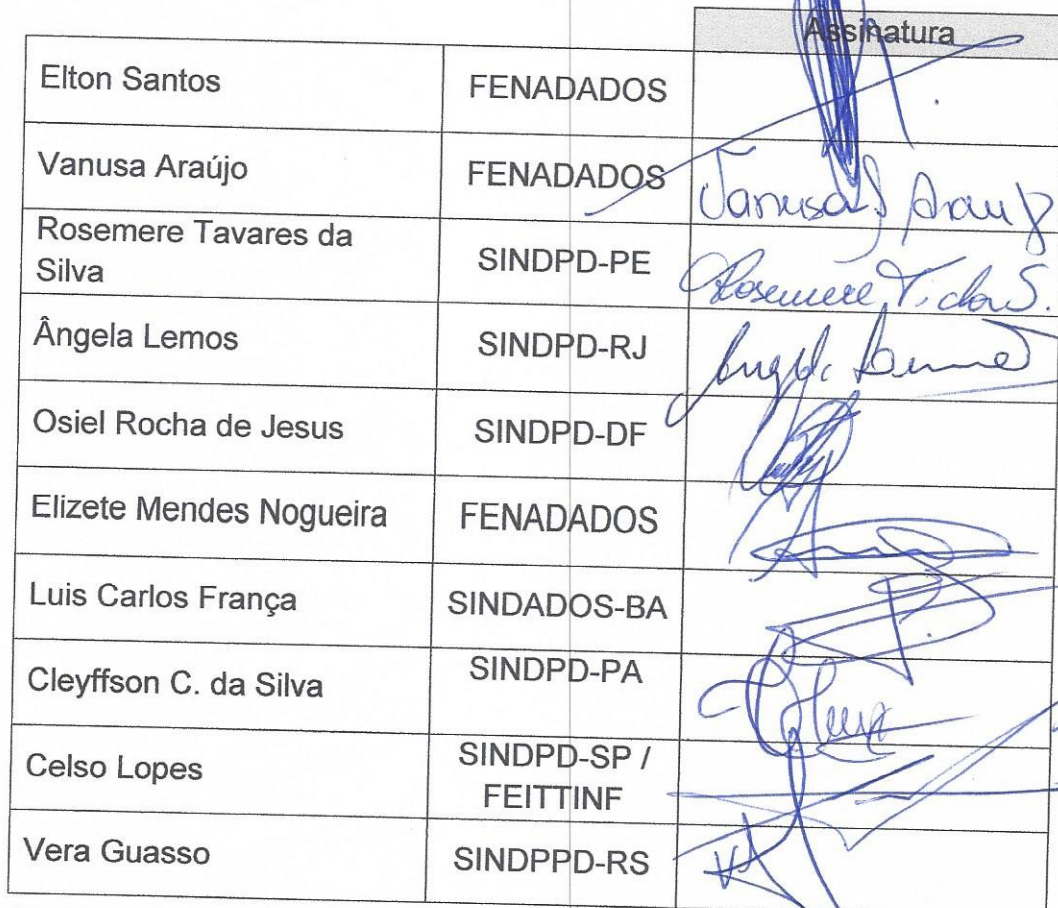 Assinatura
Elton Santos FENADADOS
Vanusa Araújo FENADADOS Vanusa
Rosemere Tavares da
Silva SINDPD-PE Rosemere
Ângela Lemos SINDPD-RJ
Osiel Rocha de Jesus SINDPD-DF
Elizete Mendes Nogueira FENADADOS
Luis Carlos França SINDADOS-BA
Cleyffson C. da Silva SINDPD-PA
Celso Lopes SINDPD-SP /
FEITTINF
Vera Guasso SINDPPD-RS